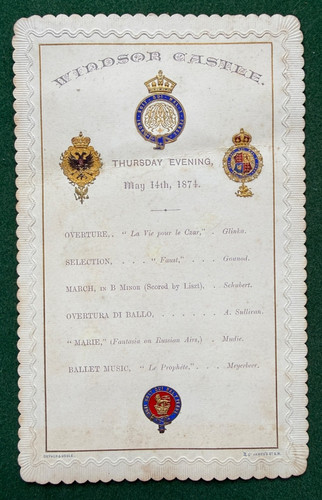 WINDSOR CASTLE.
THURSDAY EVENING,
May 14th, 1874.
OVERTURE, . "La Vie pour le Czar," . Glinka.
SELECTION, . . . . "Faust," . . . Gounod.
MARCH, IN B MINOR (Scored by Liszt), . Schubert.
OVERTURA DI BALLO, . . . . A. Sullivan.
"MARIE," (Fantasia on Russian Airs,) . Mudie.
BALLET MUSIC, "Le Prophète," . . . Meyerbeer.